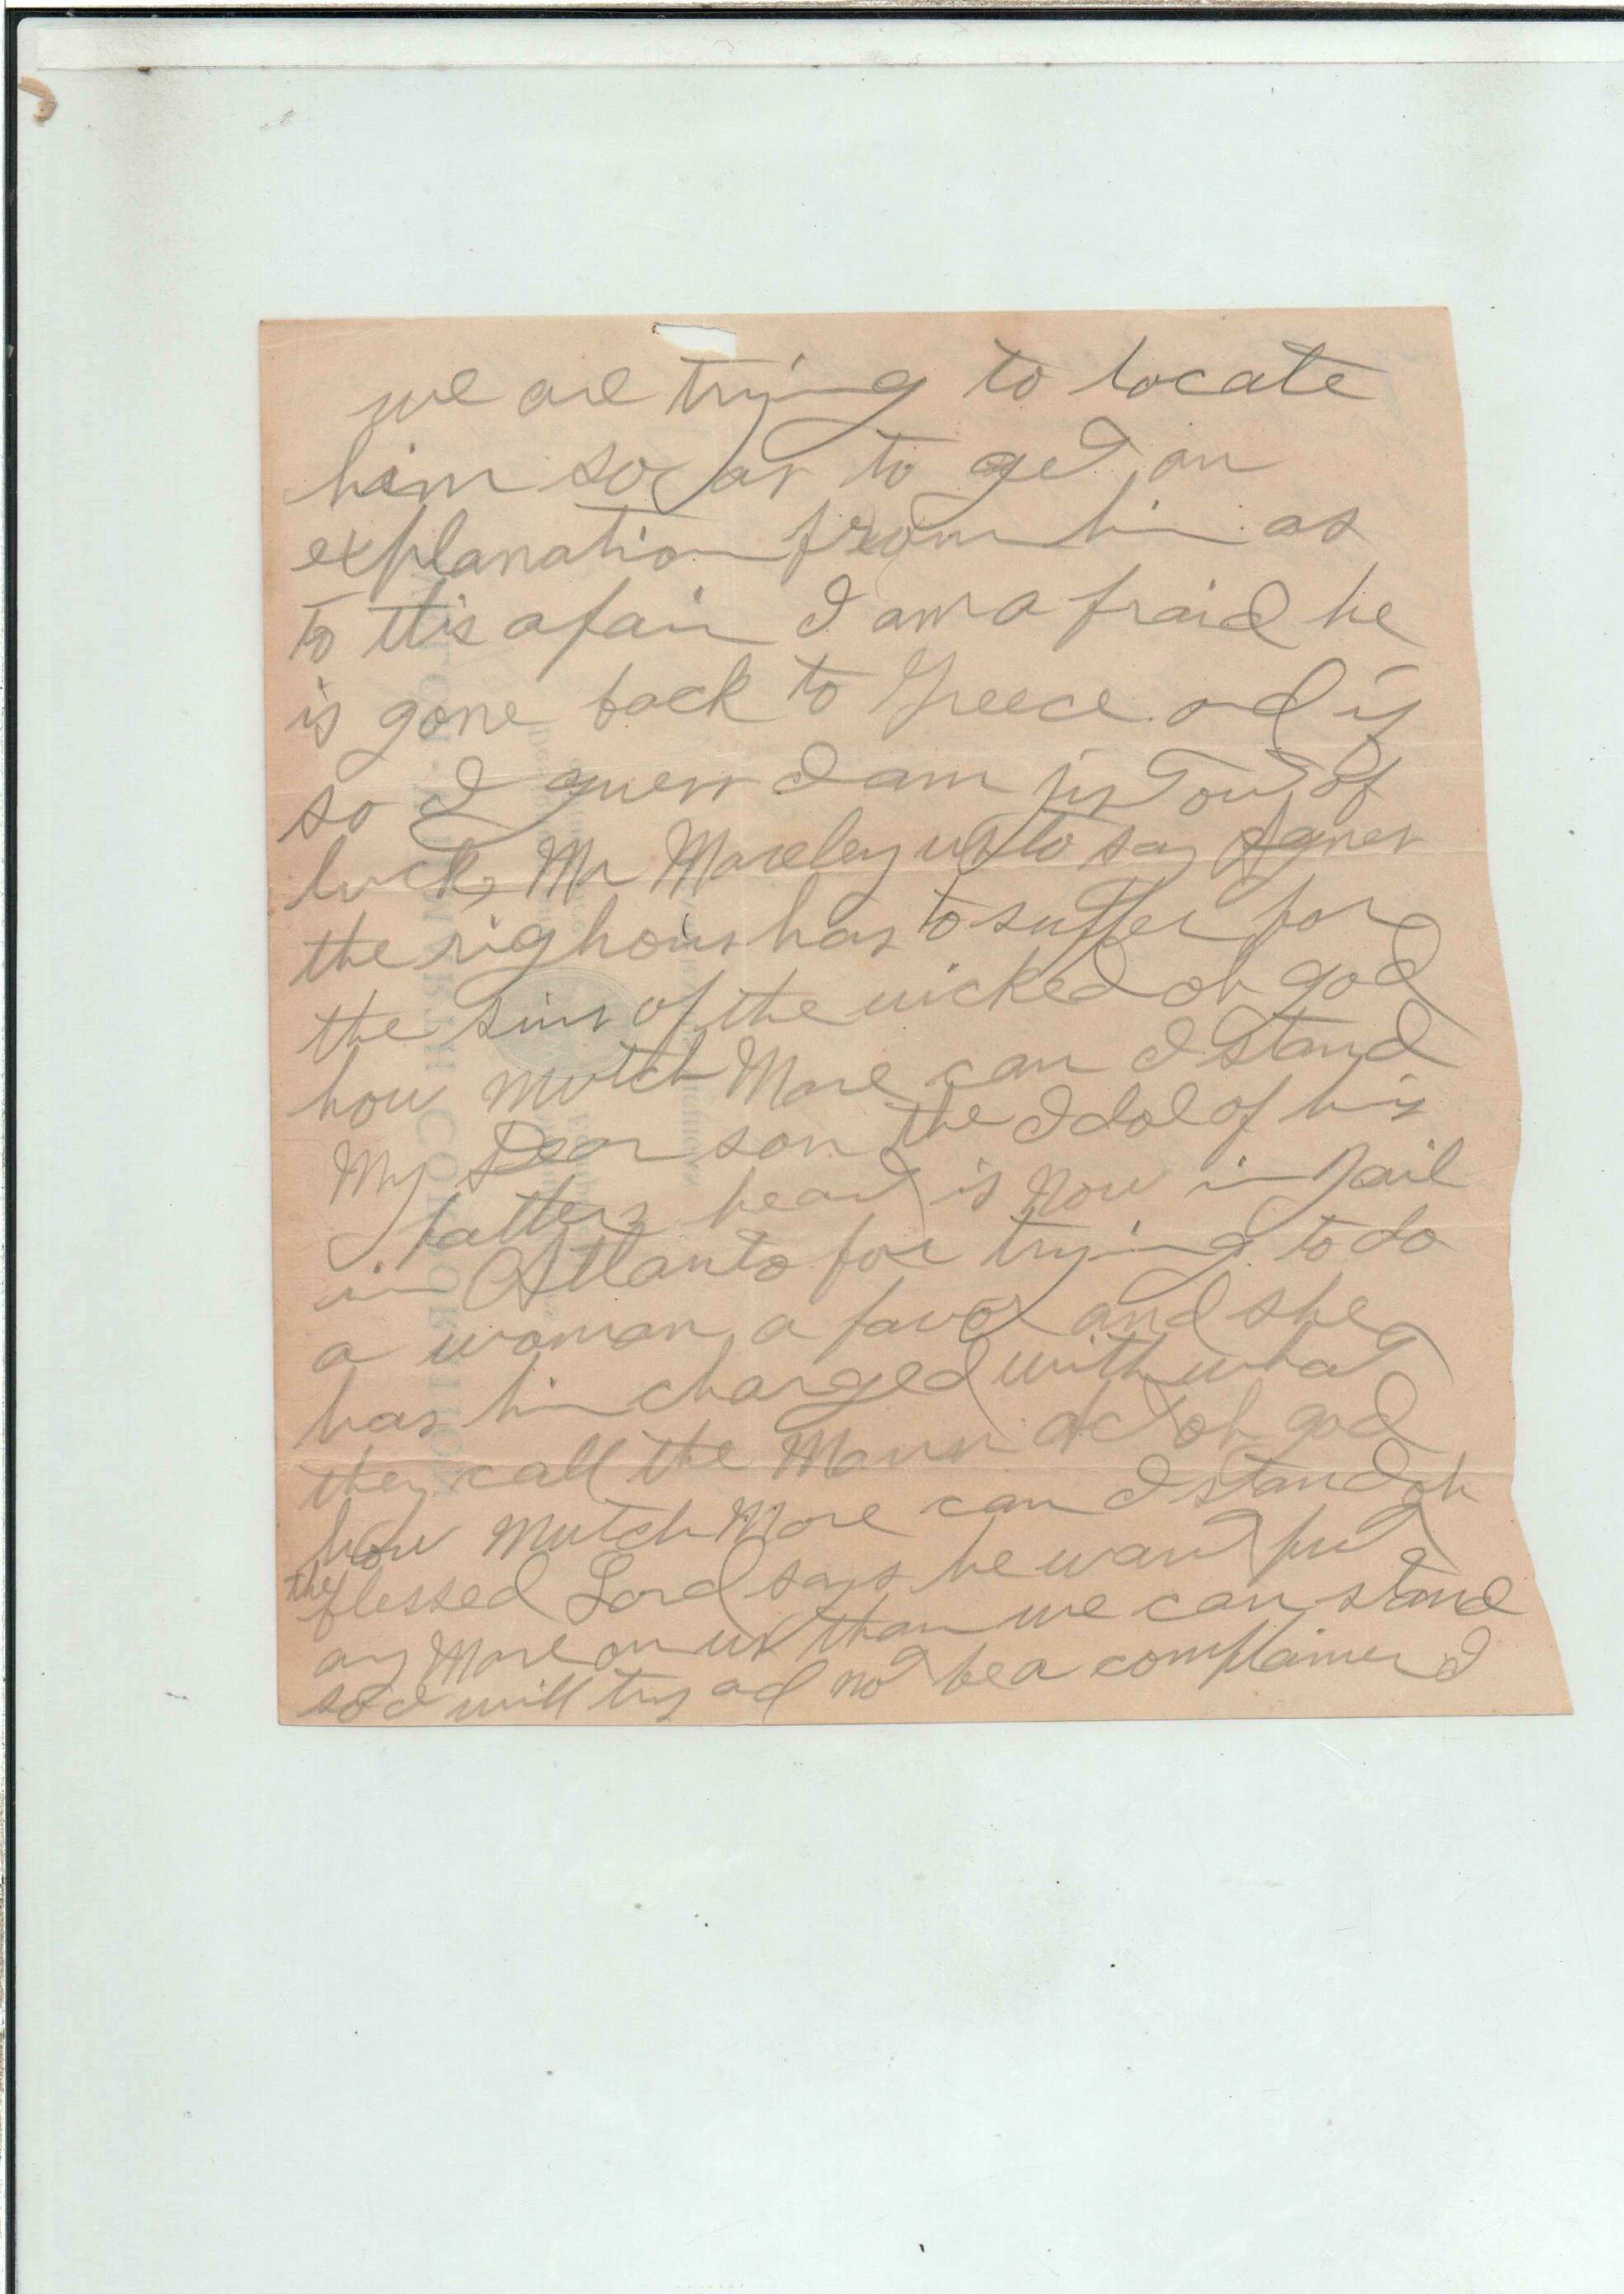 we are trying to locate
him so as to get an
explanation from him as
to this afair I am a fraid he
is gone back to Greece and if
so I guess I am just out of
luck, Mr Moseley use to say Agnes
the righous has to suffer for
the sins of the wicked oh god
how mutch More can I stand
My Dear son the Idol of his
fathers heart is Now in Jail
in Atlanta for trying to do
a woman a favor and she
has him charged with what
they call the Mann act oh god
how Mutch More can I stand oh
the blessed Lord says he wont put
any More on us than we can stand
so I will try and not be a complainer I